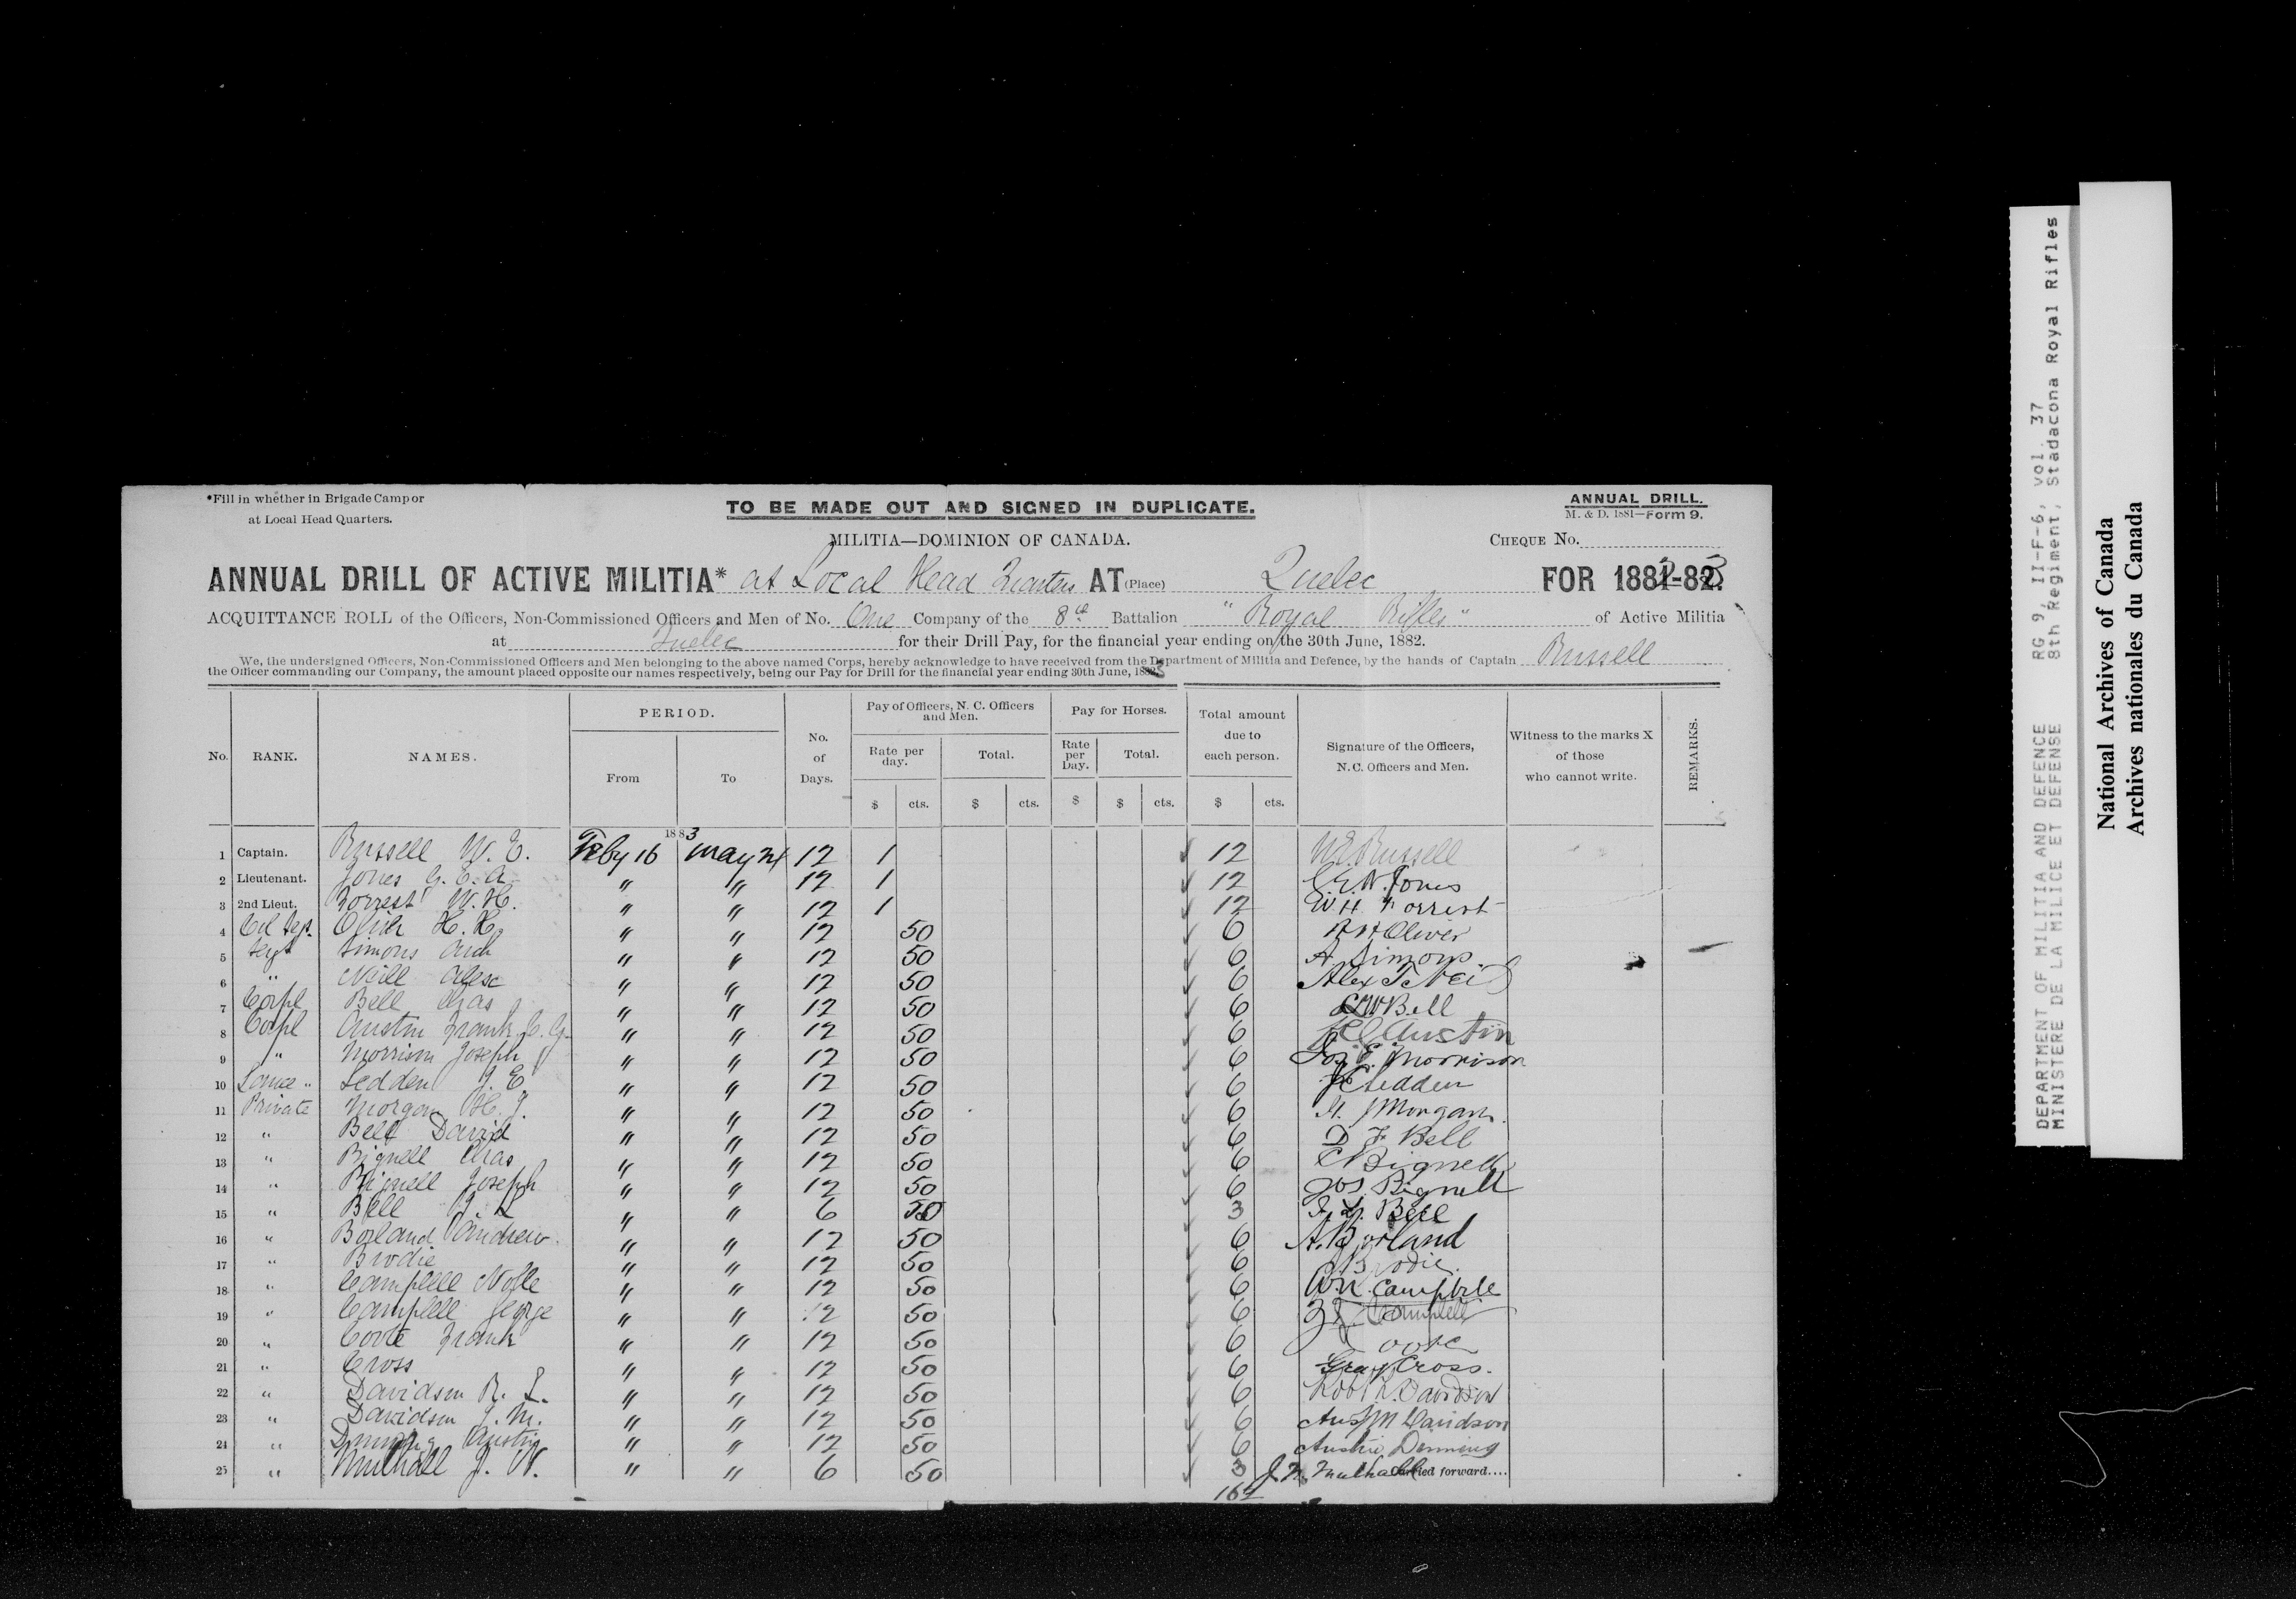 *Fill in whether in Brigade Camp or
at Local Head Quarters.
TO BE MADE OUT AND SIGNED IN DUPLICATE.
ANNUAL DRILL.
M. & D. 1881—Form 9.
MILITIA—DOMINION OF CANADA.
CHEQUE No.
ANNUAL DRILL OF ACTIVE MILITIA* at Local Head Quarters AT (Place) Quebec FOR 1882-83.
ACQUITTANCE ROLL of the Officers, Non-Commissioned Officers and Men of No. One Company of the 8th Battalion "Royal Rifles" of Active Militia
at Quebec for their Drill Pay, for the financial year ending on the 30th June, 1882.
We, the undersigned Officers, Non-Commissioned Officers and Men belonging to the above named Corps, hereby acknowledge to have received from the Department of Militia and Defence, by the hands of Captain Russell
the Officer commanding our Company, the amount placed opposite our names respectively, being our Pay for Drill for the financial year ending 30th June, 1883
No. RANK. NAMES. PERIOD. From To No. of Days. Pay of Officers, N. C. Officers and Men. Rate per day. Total. Pay for Horses. Rate per Day. Total. Total amount due to each person. Signature of the Officers, N. C. Officers and Men. Witness to the marks X of those who cannot write. REMARKS.
$ cts. $ cts. $ $ cts. $ cts.
1883
1 Captain. Russell W. E. Feby 16 May 24 12 1 12 W E Russell
2 Lieutenant. Jones G. E. A. " " 12 1 12 Jones
3 2nd Lieut. Forrest W. H. " " 12 1 12 W. H. Forrest
4 Col Sgt. Oliver H. H. " " 12 50 6 H H Oliver
5 Sergt Simons Arch " " 12 50 6 A Simons
6 " Neill Alex " " 12 50 6 Alex T Neil
7 Corpl Bell Chas " " 12 50 6 Bell
8 Corpl Austin Frank C. G. " " 12 50 6 Austin
9 " Morrison Joseph " " 12 50 6 Jos E. Morrison
10 Lance " Sedden J. E " " 12 50 6 Sedden
11 Private Morgan H. J. " " 12 50 6 H. J Morgan
12 " Bell David " " 12 50 6 D F Bell
13 " Bignell Chas " " 12 50 6 C Bignell
14 " Bignell Joseph " " 12 50 6 Jos. Bignell
15 " Bell J. L " " 6 50 3 J. L. Bell
16 " Borland Andrew. " " 12 50 6 A. Borland
17 " Brodie " " 12 50 6 J Brodie.
18 " Campbell Noble " " 12 50 6 W. N. Campbell
19 " Campbell George " " 12 50 6 Campbell
20 " Coote Frank " " 12 50 6
21 " Cross " " 12 50 6 Cross.
22 " Davidson R. L. " " 12 50 6 Robt L. Davidson
23 " Davidson J. M. " " 12 50 6 Davidson
24 " Dunning Austin " " 12 50 6 Austin Dinning
25 " Mulhall J. N. " " 6 50 3 J. N. Mulhall Carried forward....
DEPARTMENT OF MILITIA AND DEFENCE RG 9, II-F-6, vol. 37
MINISTERE DE LA MILICE ET DEFENSE 8th Regiment, Stadacona Royal Rifles
National Archives of Canada
Archives nationales du Canada